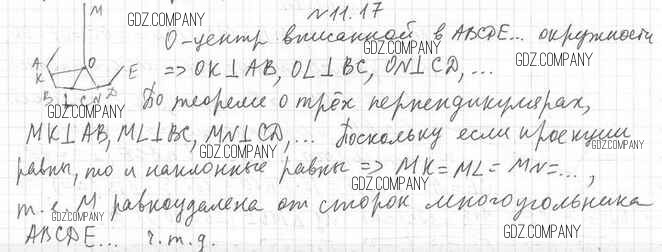 N 11.17
M GDZ.COMPANY
GDZ.COMPANY
O-центр вписанной в ABCDE... окружности
GDZ.COMPANY
A K O E
=> OK⊥AB, OL⊥BC, ON⊥CD, ...
GDZ.COMPANY
B L C N D
По теореме о трёх перпендикулярах,
GDZ.COMPANY
MK⊥AB, ML⊥BC, MN⊥CD, ... Поскольку если проекции
GDZ.COMPANY
равны, то и наклонные равны => MK=ML=MN=...,
GDZ.COMPANY
т.е. M равноудалена от сторон многоугольника
GDZ.COMPANY
ABCDE... ч.т.д.
GDZ.COMPANY